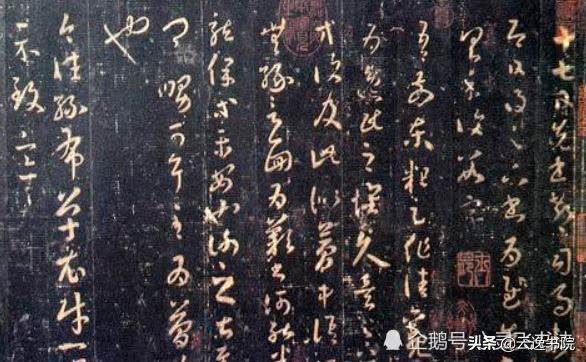 十七日先書郗司馬
即日得足下書為慰
以具示復數字
吾前東粗足作佳觀
為逸民之懷久矣足下
方復及此似夢中語
無緣言面為歎書何能悉
龍保等平安也謝之甚
見卿舅可耳至為簡
也
今往絲布單衣財一
示致意
企鹅号
头条 @云逸书院